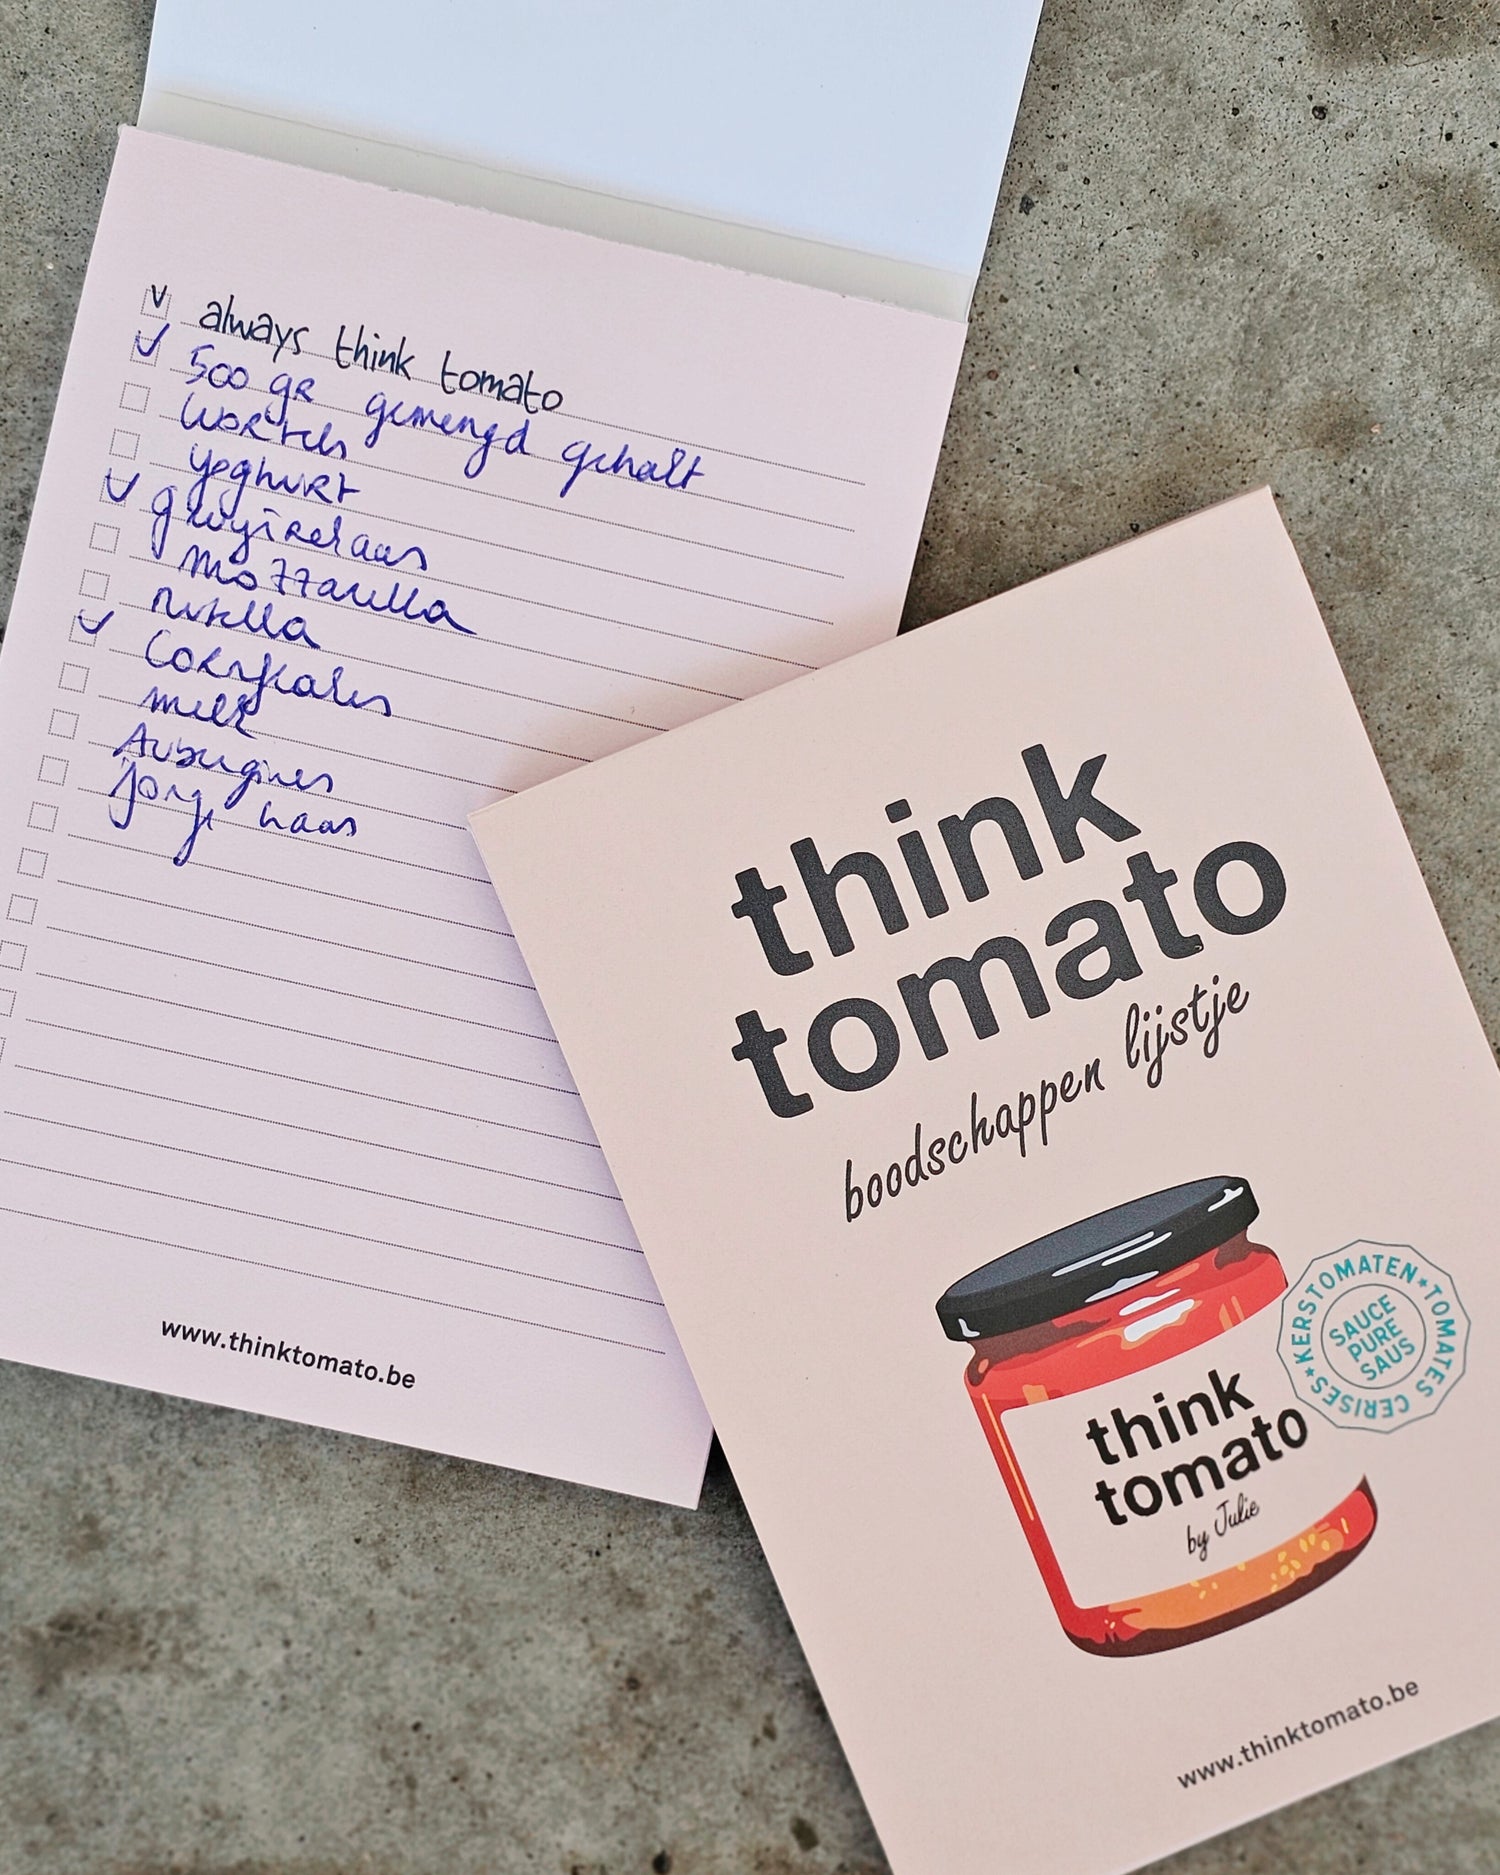 always think tomato
500 gr gemengd gehakt
Wortels
yoghurt
gruyèrekaas
mozzarella
nutella
Cornflakes
melk
Aubergines
jonge kaas
www.thinktomato.be
think
tomato
boodschappen lijstje
KERSTOMATEN * TOMATES CERISES *
SAUCE
PURE
SAUS
think
tomato
by Julie
www.thinktomato.be